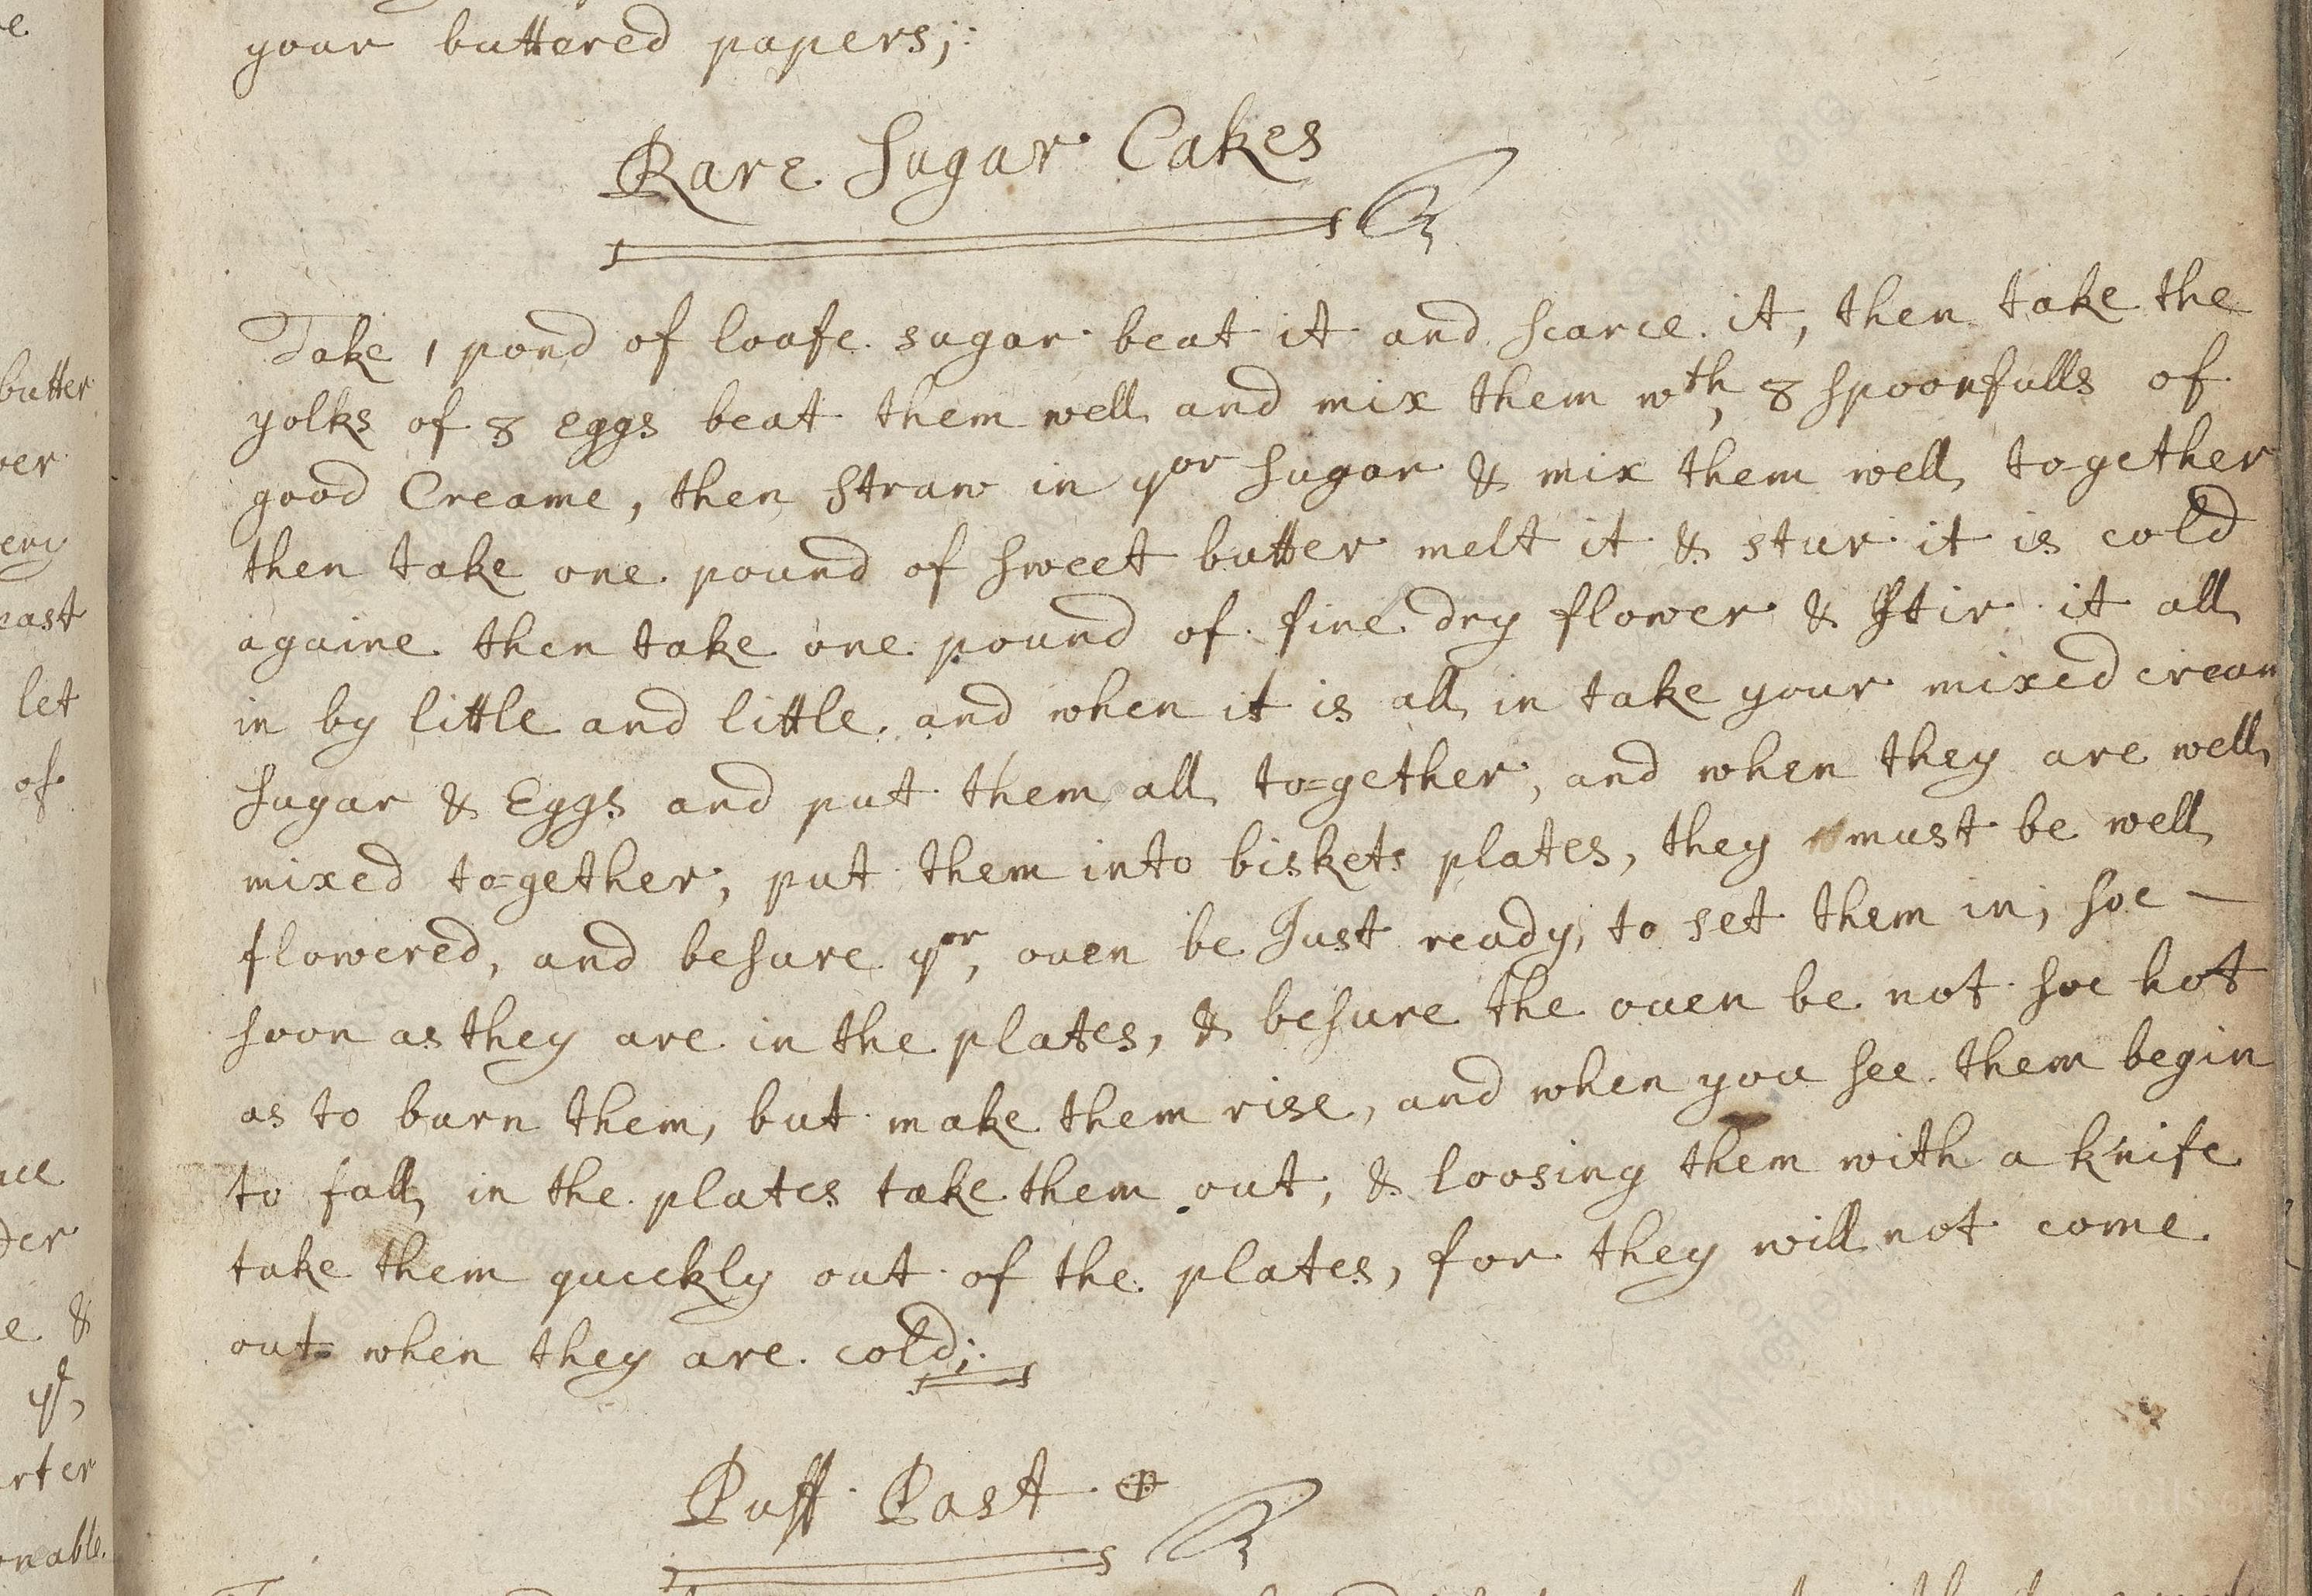 your buttered papers;:
Rare Sugar Cakes
Take 1 pond of loafe sugar beat it and searce it, then take the
yolks of 8 Eggs beat them well and mix them wth, 8 spoonfulls of
good Creame, then straw in yor sugar & mix them well together
then take one pound of sweet butter melt it & stur it is cold
againe then take one pound of fine dry flower & stir it all
in by little and little, and when it is all in take your mixed cream
sugar & Eggs and put them all to=gether, and when they are well
mixed to=gether, put them into biskets plates, they must be well
flowered, and besure yor, ouen be Just ready, to set them in; soe –
soon as they are in the plates, & besure the ouen be not soe hot
as to burn them, but make them rise, and when you see them begin
to fall in the plates take them out, & loosing them with a knife
take them quickly out of the plates, for they will not come
out when they are cold;.
Puff Past
butter
let
of